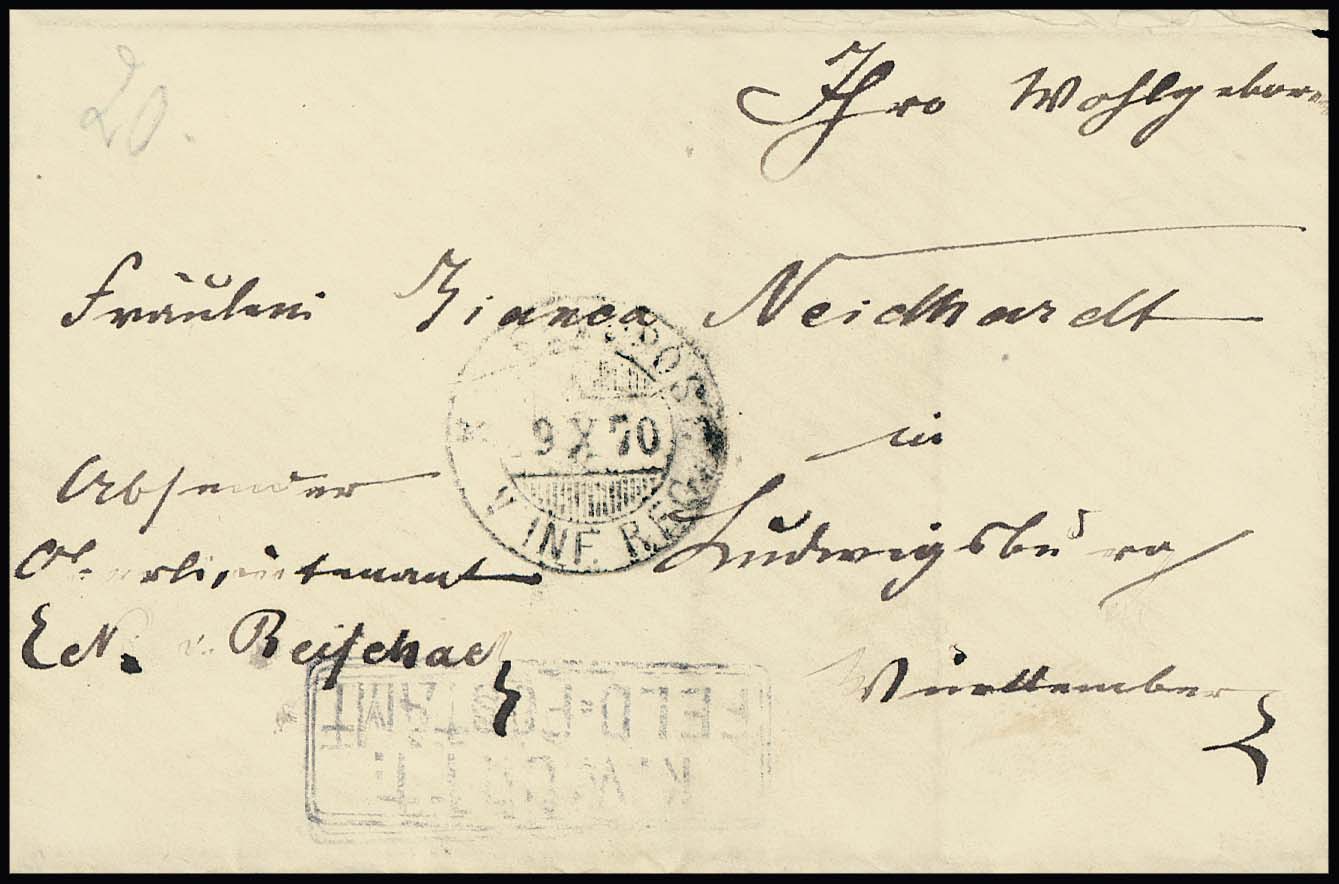 20.
Ihro Wohlgeboren
Fräulein Bianca Neidhardt
in
Ludwigsburg
Württemberg
Absender
Oberlieutenant
v. Reischach
9 X 70
V INF. REG.
FELD=POSTAMT
K. W.